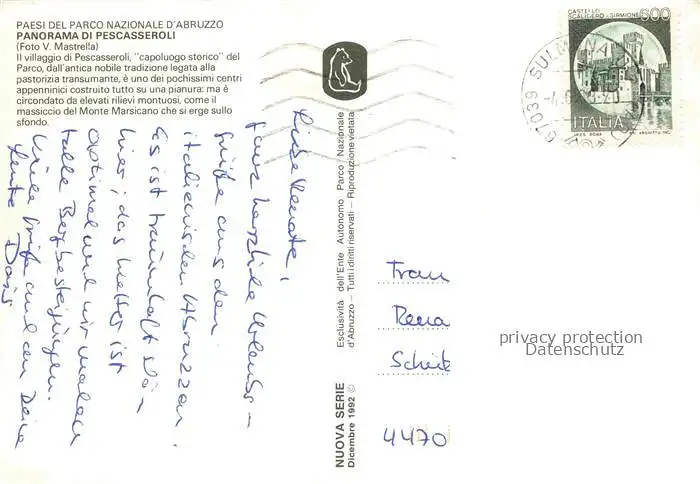 PAESI DEL PARCO NAZIONALE D'ABRUZZO
PANORAMA DI PESCASSEROLI
(Foto V. Mastrella)
Il villaggio di Pescasseroli, "capoluogo storico" del
Parco, dall'antica nobile tradizione legata alla
pastorizia transumante, è uno dei pochissimi centri
appenninici costruito tutto su una pianura: ma è
circondato da elevati rilievi montuosi, come il
massiccio del Monte Marsicano che si erge sullo
sfondo.
Liebe Renate,
ganz herzliche Urlaubs-
grüße aus den
italienischen Abruzzen.
Es ist traumhaft schön
hier; das Wetter ist
optimal und wir machen
tolle Bergbesteigungen.
Viele Grüße auch an Deine
Leute Doris
NUOVA SERIE
Dicembre 1992 ©
Esclusività dell'Ente Autonomo Parco Nazionale
d'Abruzzo – Tutti i diritti riservati – Riproduzione vietata
CASTELLO
SCALIGERO - SIRMIONE
600
ITALIA
67039 SULMONA
Frau
Rena
4470
privacy protection
Datenschutz